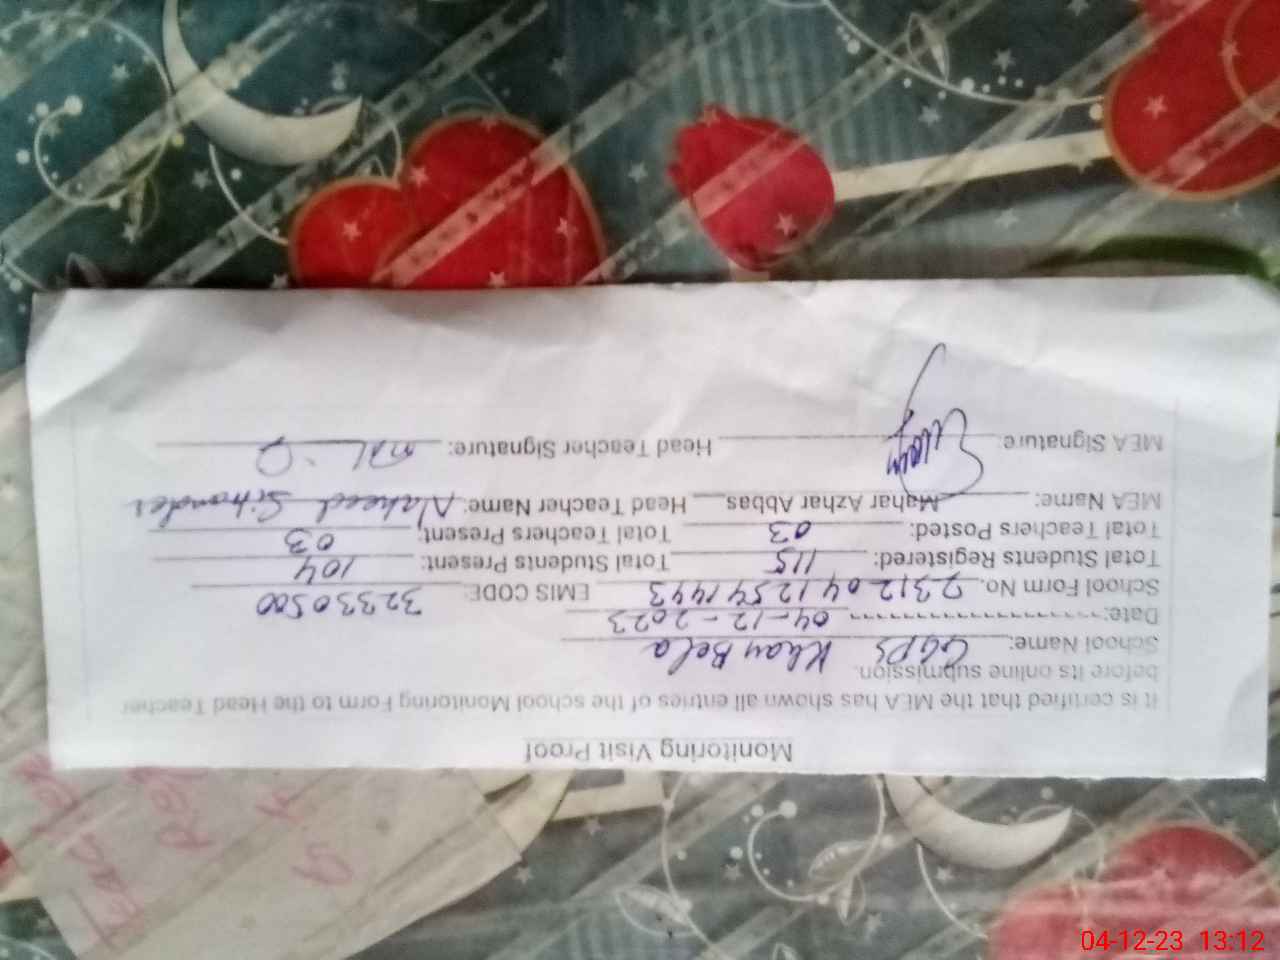 Monitoring Visit Proof
It is certified that the MEA has shown all entries of the school Monitoring Form to the Head Teacher
before its online submission.
School Name: GGPS Khan Bela
Date: 04-12-2023
School Form No. 2312041254 1443 EMIS CODE: 32330500
Total Students Registered: 115 Total Students Present: 104
Total Teachers Posted: 03 Total Teachers Present: 03
MEA Name: Mahar Azhar Abbas Head Teacher Name: Naheed Sikander
MEA Signature: Head Teacher Signature:
04-12-23 13:12